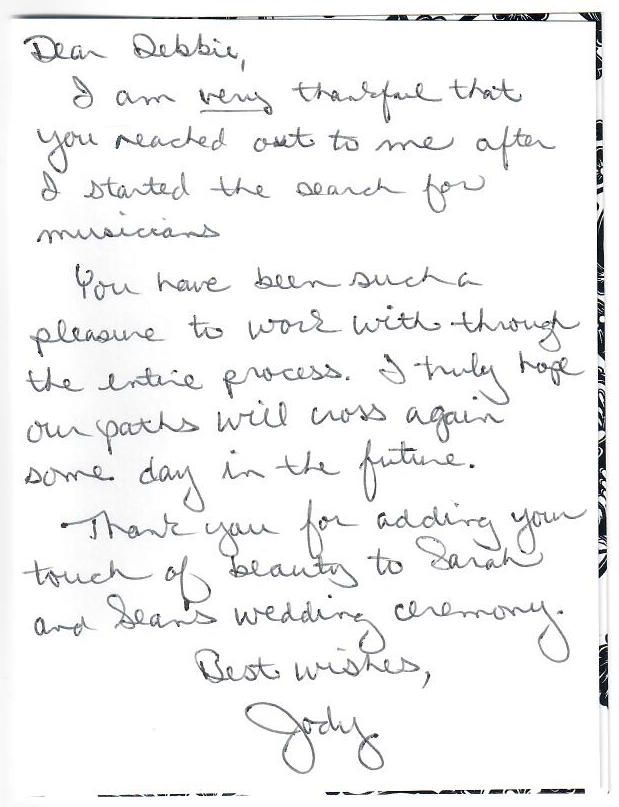 Dear Debbie,
I am very thankful that
you reached out to me after
I started the search for
musicians
You have been such a
pleasure to work with through
the entire process. I truly hope
our paths will cross again
some day in the future.
Thank you for adding your
touch of beauty to Sarah
and Sean's wedding ceremony.
Best wishes,
Jody